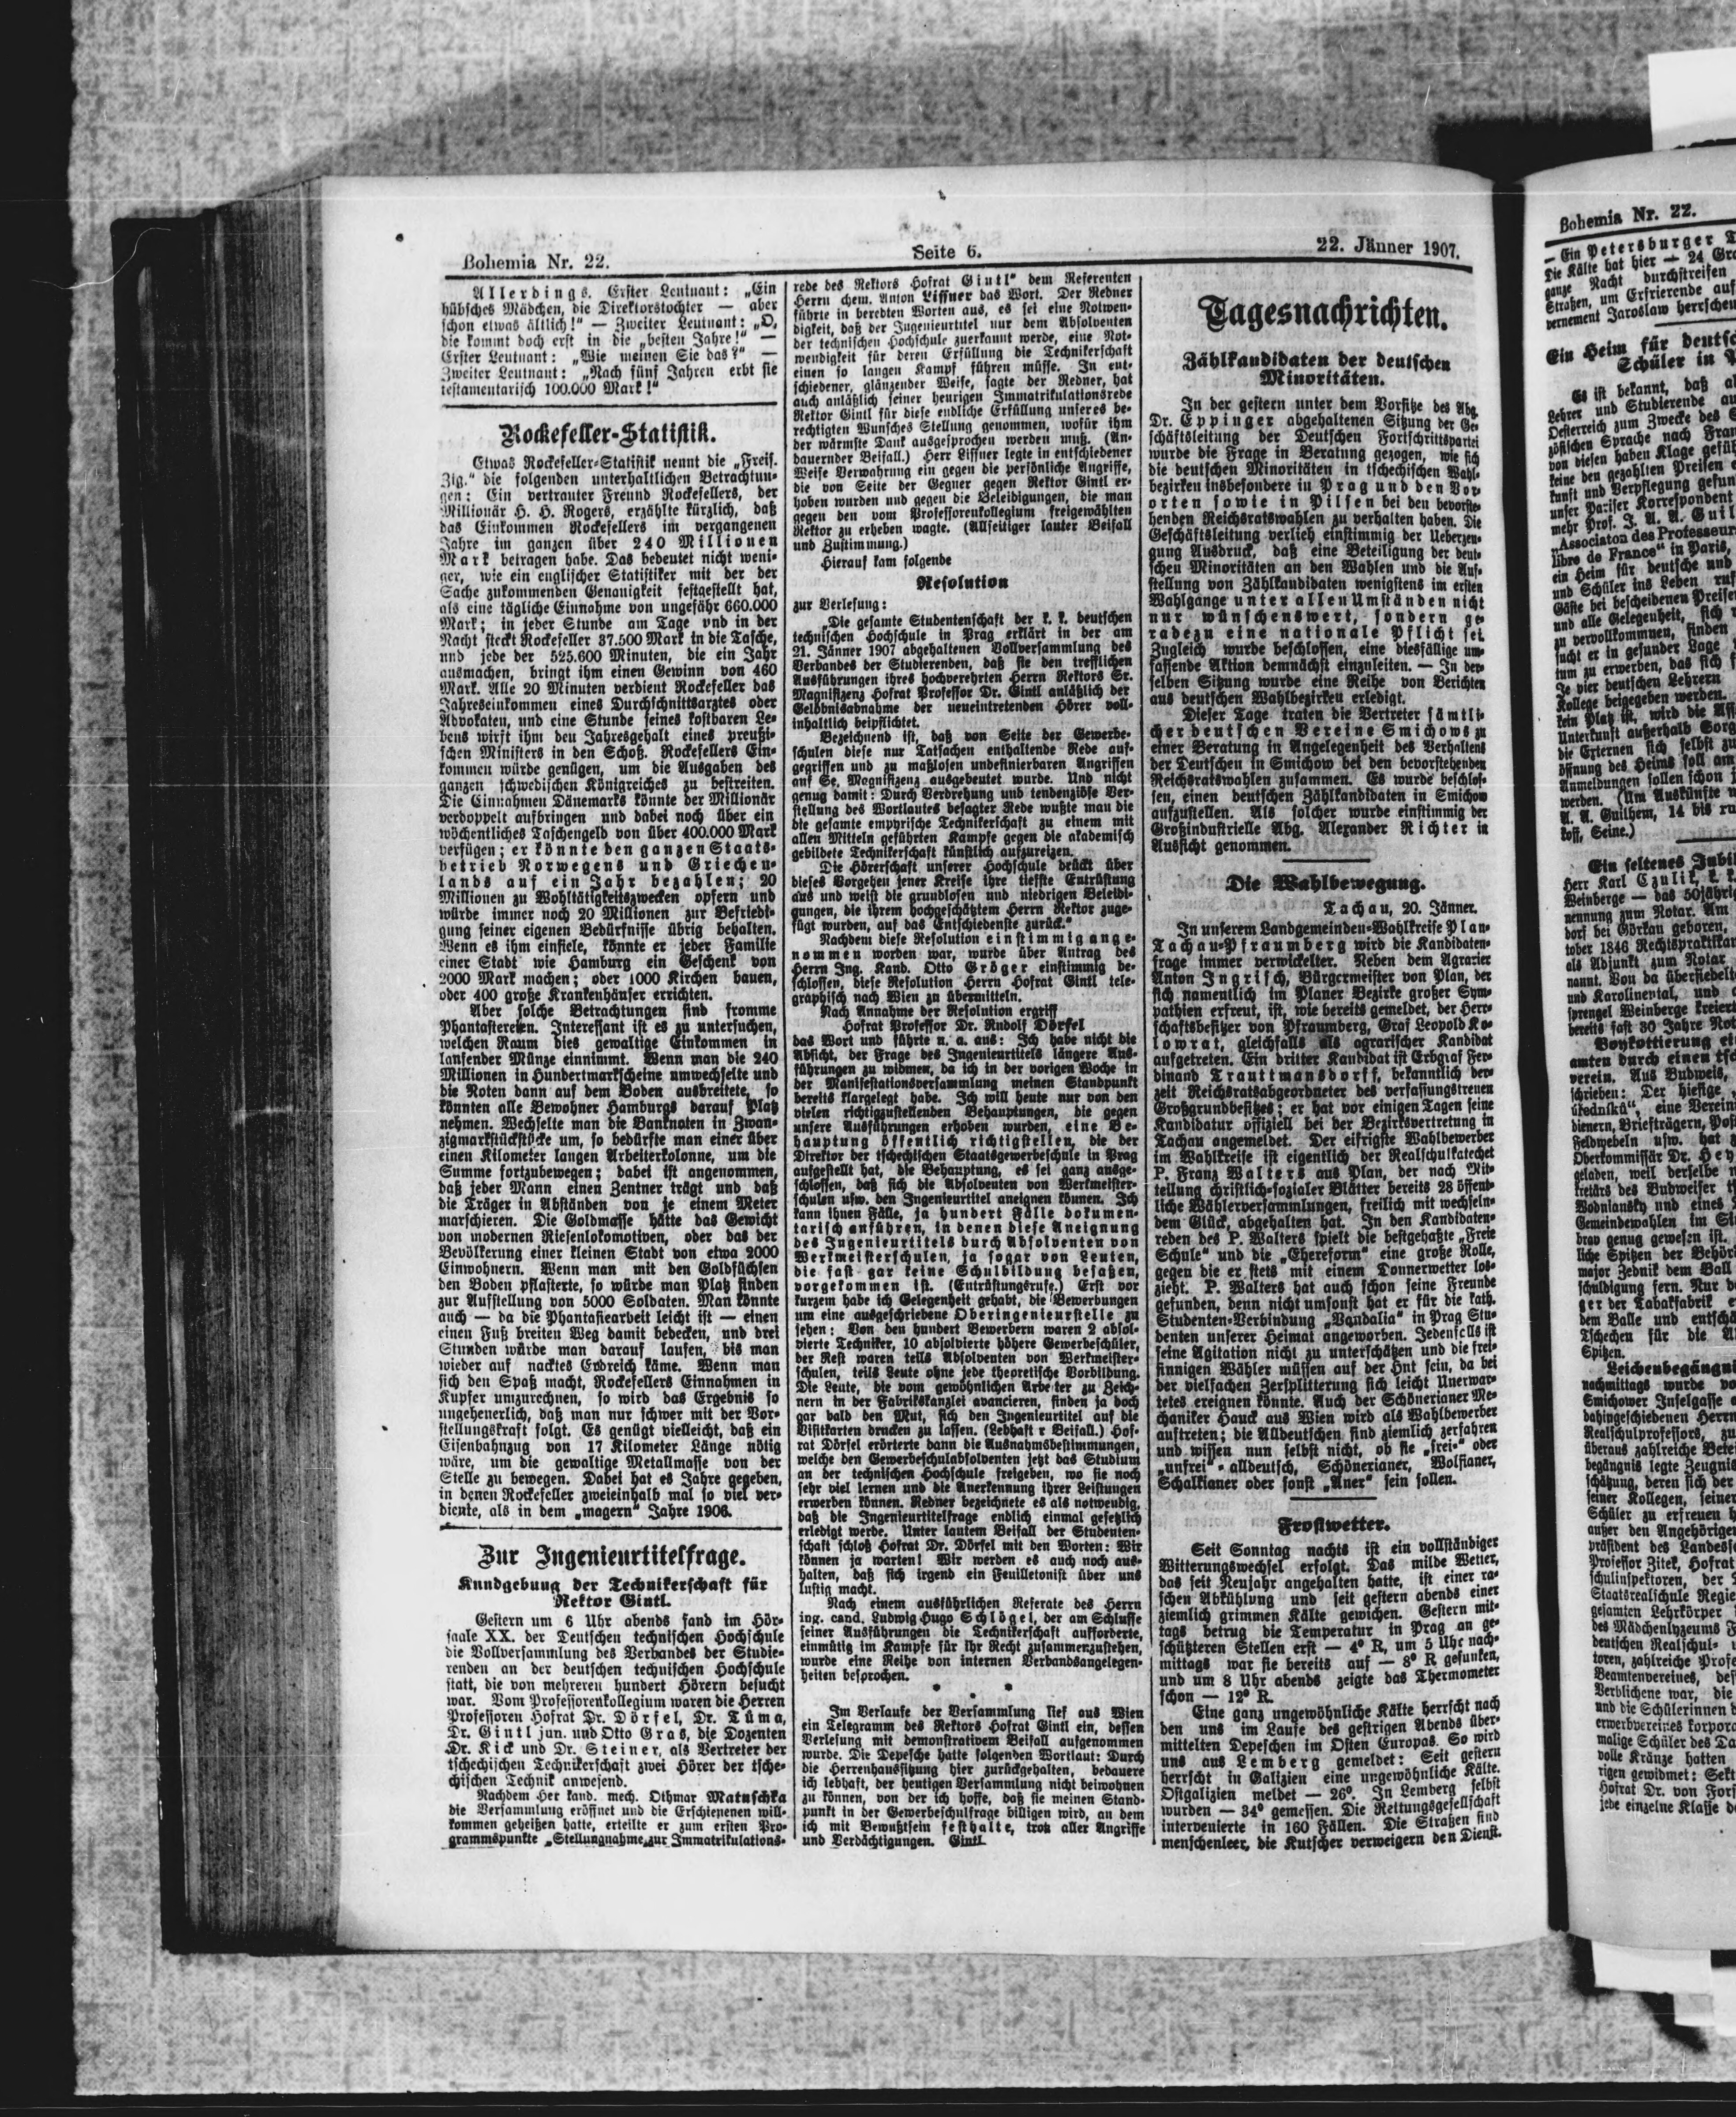 Bohemia Nr. 22.
Seite 6.
22. Jänner 1907.
Allerdings. Erster Leutnant: „Ein
hübsches Mädchen, die Direktorstochter — aber
schon etwas ältlich!“ — Zweiter Leutnant: „O,
die kommt doch erst in die „besten Jahre!“ —
Erster Leutnant: „Wie meinen Sie das?“ —
Zweiter Leutnant: „Nach fünf Jahren erbt sie
testamentarisch 100.000 Mark!“
Rockefeller-Statistik.
Etwas Rockefeller-Statistik nennt die „Freis.
Ztg.“ die folgenden unterhaltlichen Betrachtun-
gen: Ein vertrauter Freund Rockefellers, der
Millionär H. H. Rogers, erzählte kürzlich, daß
das Einkommen Rockefellers im vergangenen
Jahre im ganzen über 240 Millionen
Mark betragen habe. Das bedeutet nicht weni-
ger, wie ein englischer Statistiker mit der der
Sache zukommenden Genauigkeit festgestellt hat,
als eine tägliche Einnahme von ungefähr 660.000
Mark; in jeder Stunde am Tage und in der
Nacht steckt Rockefeller 37.500 Mark in die Tasche,
und jede der 525.600 Minuten, die ein Jahr
ausmachen, bringt ihm einen Gewinn von 460
Mark. Alle 20 Minuten verdient Rockefeller das
Jahreseinkommen eines Durchschnittsarztes oder
Advokaten, und eine Stunde seines kostbaren Le-
bens wirft ihm den Jahresgehalt eines preußi-
schen Ministers in den Schoß. Rockefellers Ein-
kommen würde genügen, um die Ausgaben des
ganzen schwedischen Königreiches zu bestreiten.
Die Einnahmen Dänemarks könnte der Millionär
verdoppelt aufbringen und dabei noch über ein
wöchentliches Taschengeld von über 400.000 Mark
verfügen; er könnte den ganzen Staats-
betrieb Norwegens und Griechen-
lands auf ein Jahr bezahlen; 20
Millionen zu Wohltätigkeitszwecken opfern und
würde immer noch 20 Millionen zur Befriedi-
gung seiner eigenen Bedürfnisse übrig behalten.
Wenn es ihm einfiele, könnte er jeder Familie
einer Stadt wie Hamburg ein Geschenk von
2000 Mark machen; oder 1000 Kirchen bauen,
oder 400 große Krankenhäuser errichten.
Aber solche Betrachtungen sind fromme
Phantastereien. Interessant ist es zu untersuchen,
welchen Raum dies gewaltige Einkommen in
laufender Münze einnimmt. Wenn man die 240
Millionen in Hundertmarkscheine umwechselte und
die Noten dann auf dem Boden ausbreitete, so
könnten alle Bewohner Hamburgs darauf Platz
nehmen. Wechselte man die Banknoten in Zwan-
zigmarkstückstöcke um, so bedürfte man einer über
einen Kilometer langen Arbeiterkolonne, um die
Summe fortzubewegen; dabei ist angenommen,
daß jeder Mann einen Zentner trägt und daß
die Träger in Abständen von je einem Meter
marschieren. Die Goldmasse hätte das Gewicht
von modernen Riesenlokomotiven, oder das der
Bevölkerung einer kleinen Stadt von etwa 2000
Einwohnern. Wenn man mit den Goldfüchsen
den Boden pflasterte, so würde man Platz finden
zur Aufstellung von 5000 Soldaten. Man könnte
auch — da die Phantasiearbeit leicht ist — einen
einen Fuß breiten Weg damit bedecken, und drei
Stunden würde man darauf laufen, bis man
wieder auf nacktes Erdreich käme. Wenn man
sich den Spaß macht, Rockefellers Einnahmen in
Kupfer umzurechnen, so wird das Ergebnis so
ungeheuerlich, daß man nur schwer mit der Vor-
stellungskraft folgt. Es genügt vielleicht, daß ein
Eisenbahnzug von 17 Kilometer Länge nötig
wäre, um die gewaltige Metallmasse von der
Stelle zu bewegen. Dabei hat es Jahre gegeben,
in denen Rockefeller zweieinhalb mal so viel ver-
diente, als in dem „magern“ Jahre 1906.
Zur Ingenieurtitelfrage.
Kundgebung der Technikerschaft für
Rektor Gintl.
Gestern um 6 Uhr abends fand im Hör-
saale XX. der Deutschen technischen Hochschule
die Vollversammlung des Verbandes der Studie-
renden an der deutschen technischen Hochschule
statt, die von mehreren hundert Hörern besucht
war. Vom Professorenkollegium waren die Herren
Professoren Hofrat Dr. Dörfel, Dr. Tuma,
Dr. Gintl jun. und Otto Gras, die Dozenten
Dr. Kick und Dr. Steiner, als Vertreter der
tschechischen Technikerschaft zwei Hörer der tsche-
chischen Technik anwesend.
Nachdem Her kand. mech. Othmar Matuschka
die Versammlung eröffnet und die Erschienenen will-
kommen geheißen hatte, erteilte er zum ersten Pro-
grammspunkte „Stellungnahme zur Immatrikulations-
rede des Rektors Hofrat Gintl“ dem Referenten
Herrn chem. Anton Liffner das Wort. Der Redner
führte in beredten Worten aus, es sei eine Notwen-
digkeit, daß der Ingenieurtitel nur dem Absolventen
der technischen Hochschule zuerkannt werde, eine Not-
wendigkeit für deren Erfüllung die Technikerschaft
einen so langen Kampf führen müsse. In ent-
schiedener, glänzender Weise, sagte der Redner, hat
auch anläßlich seiner heurigen Immatrikulationsrede
Rektor Gintl für diese endliche Erfüllung unseres be-
rechtigten Wunsches Stellung genommen, wofür ihm
der wärmste Dank ausgesprochen werden muß. (An-
dauernder Beifall.) Herr Liffner legte in entschiedener
Weise Verwahrung ein gegen die persönliche Angriffe,
die von Seite der Gegner gegen Rektor Gintl er-
hoben wurden und gegen die Beleidigungen, die man
gegen den vom Professorenkollegium freigewählten
Rektor zu erheben wagte. (Allseitiger lauter Beifall
und Zustimmung.)
Hierauf kam folgende
Resolution
zur Verlesung:
„Die gesamte Studentenschaft der k. k. deutschen
technischen Hochschule in Prag erklärt in der am
21. Jänner 1907 abgehaltenen Vollversammlung des
Verbandes der Studierenden, daß sie den trefflichen
Ausführungen ihres hochverehrten Herrn Rektors Sr.
Magnifizenz Hofrat Professor Dr. Gintl anläßlich der
Gelöbnisabnahme der neueintretenden Hörer voll-
inhaltlich beipflichtet.
Bezeichnend ist, daß von Seite der Gewerbe-
schulen diese nur Tatsachen enthaltende Rede auf-
gegriffen und zu maßlosen undefinierbaren Angriffen
auf Se. Magnifizenz ausgebeutet wurde. Und nicht
genug damit: Durch Verdrehung und tendenziöse Ver-
stellung des Wortlautes besagter Rede wußte man die
die gesamte emphrische Technikerschaft zu einem mit
allen Mitteln geführten Kampfe gegen die akademisch
gebildete Technikerschaft künstlich aufzureizen.
Die Hörerschaft unserer Hochschule drückt über
dieses Vorgehen jener Kreise ihre tiefste Entrüstung
aus und weist die grundlosen und niedrigen Beleidi-
gungen, die ihrem hochgeschätztem Herrn Rektor zuge-
fügt wurden, auf das Entschiedenste zurück.“
Nachdem diese Resolution einstimmig ange-
nommen worden war, wurde über Antrag des
Herrn Ing. Kand. Otto Gröger einstimmig be-
schlossen, diese Resolution Herrn Hofrat Gintl tele-
graphisch nach Wien zu übermitteln.
Nach Annahme der Resolution ergriff
Hofrat Professor Dr. Rudolf Dörfel
das Wort und führte u. a. aus: Ich habe nicht die
Absicht, der Frage des Ingenieurtitels längere Aus-
führungen zu widmen, da ich in der vorigen Woche in
der Manifestationsversammlung meinen Standpunkt
bereits klargelegt habe. Ich will heute nur von den
vielen richtigzustellenden Behauptungen, die gegen
unsere Ausführungen erhoben wurden, eine Be-
hauptung öffentlich richtigstellen, die der
Direktor der tschechischen Staatsgewerbeschule in Prag
aufgestellt hat, die Behauptung, es sei ganz ausge-
schlossen, daß sich die Absolventen von Werkmeister-
schulen usw. den Ingenieurtitel aneignen können. Ich
kann ihnen Fälle, ja hundert Fälle dokumen-
tarisch anführen, in denen diese Aneignung
des Ingenieurtitels durch Absolventen von
Werkmeisterschulen, ja sogar von Leuten,
die fast gar keine Schulbildung besaßen,
vorgekommen ist. (Entrüstungsrufe.) Erst vor
kurzem habe ich Gelegenheit gehabt, die Bewerbungen
um eine ausgeschriebene Oberingenieurstelle zu
sehen: Von den hundert Bewerbern waren 2 absol-
vierte Techniker, 10 absolvierte höhere Gewerbeschüler,
der Rest waren teils Absolventen von Werkmeister-
schulen, teils Leute ohne jede theoretische Vorbildung.
Die Leute, die vom gewöhnlichen Arbeiter zu Zeich-
nern in der Fabrikskanzlei avancieren, finden ja doch
gar bald den Mut, sich den Ingenieurtitel auf die
Visitkarten drucken zu lassen. (Lebhaft r Beifall.) Hof-
rat Dörfel erörterte dann die Ausnahmsbestimmungen,
welche den Gewerbeschulabsolventen jetzt das Studium
an der technischen Hochschule freigeben, wo sie noch
sehr viel lernen und die Anerkennung ihrer Leistungen
erwerben können. Redner bezeichnete es als notwendig,
daß die Ingenieurtitelfrage endlich einmal gesetzlich
erledigt werde. Unter lautem Beifall der Studenten-
schaft schloß Hofrat Dr. Dörfel mit den Worten: Wir
können ja warten! Wir werden es auch noch aus-
halten, daß sich irgend ein Feuilletonist über uns
lustig macht.
Nach einem ausführlichen Referate des Herrn
ing. cand. Ludwig Hugo Schlögel, der am Schlusse
seiner Ausführungen die Technikerschaft aufforderte,
einmütig im Kampfe für Ihr Recht zusammenzustehen,
wurde eine Reihe von internen Verbandsangelegen-
heiten besprochen.
* * *
Im Verlaufe der Versammlung lief aus Wien
ein Telegramm des Rektors Hofrat Gintl ein, dessen
Verlesung mit demonstrativem Beifall aufgenommen
wurde. Die Depesche hatte folgenden Wortlaut: Durch
die Herrenhaussitzung hier zurückgehalten, bedauere
ich lebhaft, der heutigen Versammlung nicht beiwohnen
zu können, von der ich hoffe, daß sie meinen Stand-
punkt in der Gewerbeschulfrage billigen wird, an dem
ich mit Bewußtsein festhalte, trotz aller Angriffe
und Verdächtigungen. Gintl.
Tagesnachrichten.
Zählkandidaten der deutschen
Minoritäten.
In der gestern unter dem Vorsitze des Abg.
Dr. Eppinger abgehaltenen Sitzung der Ge-
schäftsleitung der Deutschen Fortschrittspartei
wurde die Frage in Beratung gezogen, wie sich
die deutschen Minoritäten in tschechischen Wahl-
bezirken insbesondere in Prag und den Vor-
orten sowie in Pilsen bei den bevorste-
henden Reichsratswahlen zu verhalten haben. Die
Geschäftsleitung verlieh einstimmig der Ueberzeu-
gung Ausdruck, daß eine Beteiligung der deut-
schen Minoritäten an den Wahlen und die Auf-
stellung von Zählkandidaten wenigstens im ersten
Wahlgange unter allen Umständen nicht
nur wünschenswert, sondern ge-
radezu eine nationale Pflicht sei.
Zugleich wurde beschlossen, eine diesfällige um-
fassende Aktion demnächst einzuleiten. — In der-
selben Sitzung wurde eine Reihe von Berichten
aus deutschen Wahlbezirken erledigt.
Dieser Tage traten die Vertreter sämtli-
cher deutschen Vereine Smichows zu
einer Beratung in Angelegenheit des Verhaltens
der Deutschen in Smichow bei den bevorstehenden
Reichsratswahlen zusammen. Es wurde beschlos-
sen, einen deutschen Zählkandidaten in Smichow
aufzustellen. Als solcher wurde einstimmig der
Großindustrielle Abg. Alexander Richter in
Aussicht genommen.
Die Wahlbewegung.
Tachau, 20. Jänner.
In unserem Landgemeinden-Wahlkreise Plan-
Tachau-Pfraumberg wird die Kandidaten-
frage immer verwickelter. Neben dem Agrarier
Anton Ingrisch, Bürgermeister von Plan, der
sich namentlich im Planer Bezirke großer Sym-
pathien erfreut, ist, wie bereits gemeldet, der Herr-
schaftsbesitzer von Pfraumberg, Graf Leopold Ko-
lowrat, gleichfalls als agrarischer Kandidat
aufgetreten. Ein dritter Kandidat ist Erbgraf Fer-
dinand Trauttmansdorff, bekanntlich der-
zeit Reichsratsabgeordneter des verfassungstreuen
Großgrundbesitzes; er hat vor einigen Tagen seine
Kandidatur offiziell bei der Bezirksvertretung in
Tachau angemeldet. Der eifrigste Wahlbewerber
im Wahlkreise ist eigentlich der Realschulkatechet
P. Franz Walters aus Plan, der nach Mit-
teilung christlich-sozialer Blätter bereits 28 öffent-
liche Wählerversammlungen, freilich mit wechseln-
dem Glück, abgehalten hat. In den Kandidaten-
reden des P. Walters spielt die bestgehaßte „Freie
Schule“ und die „Ehereform“ eine große Rolle,
gegen die er stets mit einem Donnerwetter los-
zieht. P. Walters hat auch schon seine Freunde
gefunden, denn nicht umsonst hat er für die kath.
Studenten-Verbindung „Vandalia“ in Prag Stu-
denten unserer Heimat angeworben. Jedenfalls ist
seine Agitation nicht zu unterschätzen und die frei-
sinnigen Wähler müssen auf der Hut sein, da bei
der vielfachen Zersplitterung sich leicht Unerwar-
tetes ereignen könnte. Auch der Schönerianer Me-
chaniker Hauck aus Wien wird als Wahlbewerber
auftreten; die Alldeutschen sind ziemlich zerfahren
und wissen nun selbst nicht, ob sie „frei-“ oder
„unfrei“-alldeutsch, Schönerianer, Wolfianer,
Schalkianer oder sonst „Aner“ sein sollen.
Frostwetter.
Seit Sonntag nachts ist ein vollständiger
Witterungswechsel erfolgt. Das milde Wetter,
das seit Neujahr angehalten hatte, ist einer ra-
schen Abkühlung und seit gestern abends einer
ziemlich grimmen Kälte gewichen. Gestern mit-
tags betrug die Temperatur in Prag an ge-
schützteren Stellen erst — 4° R, um 5 Uhr nach-
mittags war sie bereits auf — 8° R gesunken,
und um 8 Uhr abends zeigte das Thermometer
schon — 12° R.
Eine ganz ungewöhnliche Kälte herrscht nach
den uns im Laufe des gestrigen Abends über-
mittelten Depeschen im Osten Europas. So wird
uns aus Lemberg gemeldet: Seit gestern
herrscht in Galizien eine ungewöhnliche Kälte.
Ostgalizien meldet — 26°. In Lemberg selbst
wurden — 34° gemessen. Die Rettungsgesellschaft
intervenierte in 160 Fällen. Die Straßen sind
menschenleer, die Kutscher verweigern den Dienst.
Bohemia Nr. 22.
— Ein Petersburger
Die Kälte hat hier — 24
ganze Nacht durchstreifen
Straßen, um Erfrierende auf
vernement Jaroslaw
Ein Heim für
Schüler in
Es ist bekannt, daß
Lehrer und Studierende
Oesterreich zum Zwecke des
zösischen Sprache nach
von diesen haben Klage
keine den gezahlten Preisen
kunft und Verpflegung
unser Pariser Korrespondent
mehr Prof. J. A. A.
„Associaton des
libre de France“ in Paris,
ein Heim für deutsche und
und Schüler ins Leben
Gäste bei bescheidenen
und alle Gelegenheit, sich
zu vervollkommnen, finden
sucht er in gesunder Lage
tum zu erwerben, das sich
Je vier deutschen Lehrern
Kollege beigegeben werden.
kein Platz ist, wird die
Unterkunft außerhalb
die Externen sich selbst zu
öffnung des Heims soll am
Anmeldungen sollen schon
werden. (Um Auskünfte
A. A. Guilhem, 14 bis
koff, Seine.)
Ein seltenes
Herr Karl Czulik, k. k.
Weinberge — das
nennung zum Notar. Am
dorf bei Görkau geboren,
tober 1846
als Adjunkt zum Notar
nannt. Von da
und Karolinental, und
sprengel Weinberge
bereits fast 30 Jahre
Boykottierung
amten durch einen
verein. Aus Budweis,
schrieben: Der hiesige
úředníků“, eine
dienern, Briefträgern,
Feldwebeln usw. hat
Oberkommissär Dr.
geladen, weil derselbe
kretärs des Budweiser
Wodniansky und eines
Gemeindewahlen im
brav genug gewesen ist.
liche Spitzen der
major Zednik dem Ball
schuldigung fern. Nur
ger der Tabakfabrik
dem Balle und
Tschechen für die
Spitzen.
nachmittags wurde
Smichower Inselgasse
dahingeschiedenen Herrn
Realschulprofessors,
überaus zahlreiche
begängnis legte
schätzung, deren sich der
seiner Kollegen, seiner
Schüler zu erfreuen
außer den
präsident des
Professor Zitek, Hofrat
schulinspektoren, der
Staatsrealschule
gesamten Lehrkörper
des Mädchenlyzeums
deutschen Realschul-
toren, zahlreiche
Beamtenvereines,
Verblichene war, die
und die Schülerinnen
erwerbvereines
malige Schüler des
volle Kränze hatten
rigen gewidmet:
Hofrat Dr. von
jede einzelne Klasse